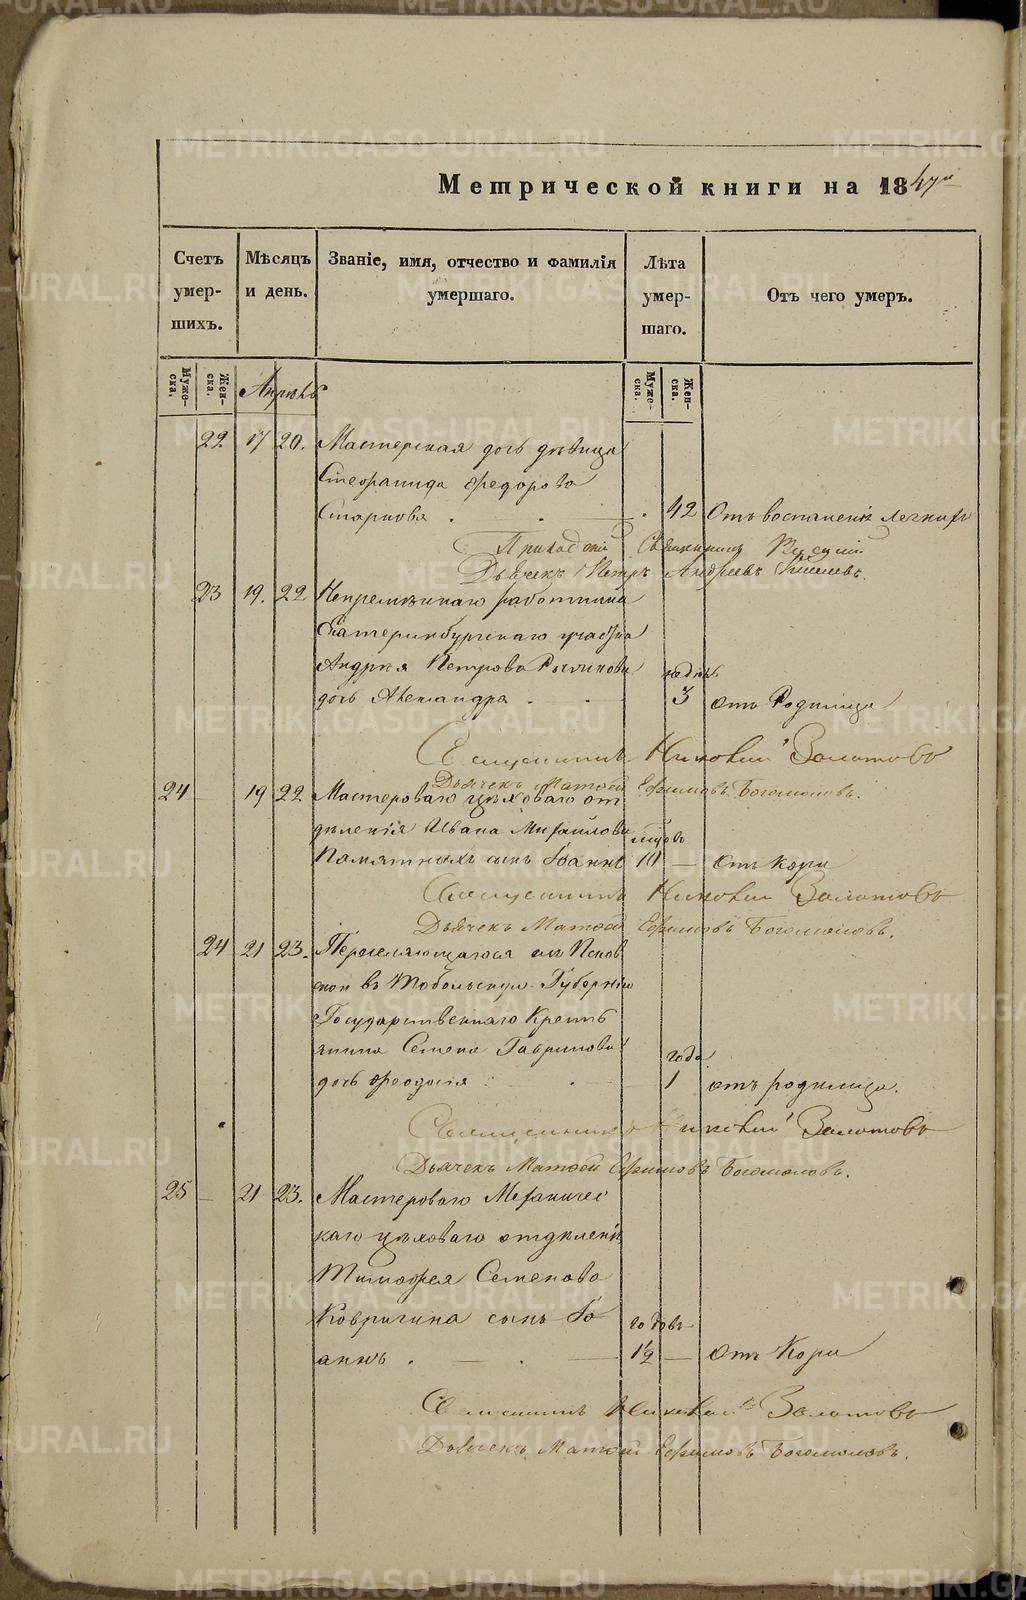 Метрической книги на 1847й
Счетъ умер- шихъ.
Мѣсяцъ и день.
Званіе, имя, отчество и фамилія умершаго.
Лѣта умер- шаго.
Отъ чего умеръ.
Муже- ска.
Жен- ска.
Апрѣль
Муже- ска.
Жен- ска.
22 17 20. Мастерская дочь дѣвица
Стефанида Федорова
42 Отъ воспаленія легкихъ
Священникъ
Дьячекъ Петръ Андреевъ Киселевъ.
23 19. 22 Непремѣннаго работника
Екатеринбургскаго
Андрея Петрова
недѣль
дочь Александра 3 отъ Родимца
Священникъ Николай Золотовъ
Дьячекъ Матфей Ефимовъ Богомоловъ.
24 19 22 Мастероваго цѣховаго от
дѣленія Ивана Михайлова
мѣсцовъ
сынъ Іоаннъ 10 отъ Кори
Священникъ Николай Золотовъ
Дьячекъ Матфей Ефимовъ Богомоловъ.
24 21 23. Переселяющагося изъ Псков
ской въ Тобольскую Губернію
Государственнаго Кресть
янина Семена Гаврилова
года
дочь Феодосія 1 отъ родимца.
Священникъ Николай Золотовъ
Дьячекъ Матфей Ефимовъ Богомоловъ.
25 21 23. Мастероваго Механичес
каго цѣховаго отдѣленія
Тимофея Семенова
Ковригина сынъ Іо
годовъ
аннъ 1½ отъ Кори
Священникъ Николай Золотовъ
Дьячекъ Матфей Ефимовъ Богомоловъ.
METRIKI.GASO-URAL.RU